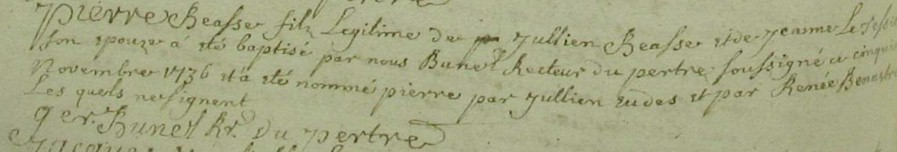 Pierre Beasse fils Legitime de Jullien Beasse et de Jeanne le
son epouze a été baptisé par nous Bunel Recteur du pertre soussigné ce
Novembre 1736 et a été nommé pierre par Jullien eudes et par Renée
Les quels ne signent
Bunel Rr. Du pertre
Jacques